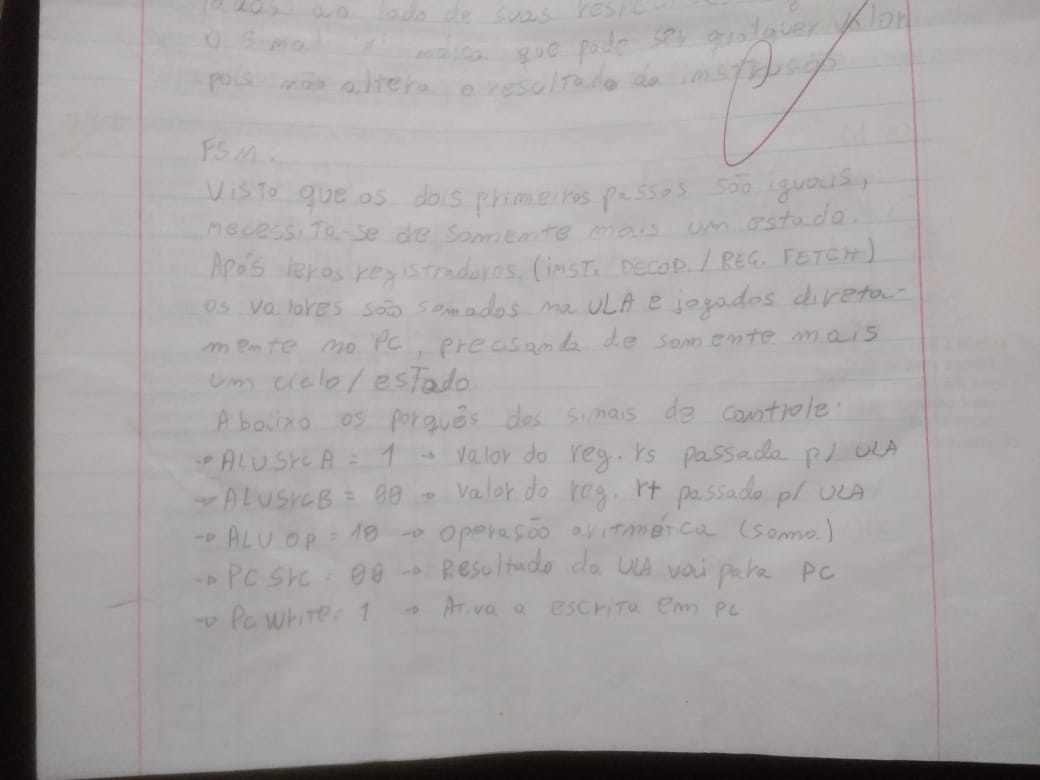 ao lado de suas
O sinal 'x' indica que pode ser qualquer valor
pois não altera o resultado da instrução
FSM.
Visto que os dois primeiros passos são iguais,
necessita-se de somente mais um estado.
Após ler os registradores. (INST. DECOD. / REG. FETCH)
os valores são somados na ULA e jogados direta-
mente no PC, precisando de somente mais
um ciclo / estado
Abaixo os porquês dos sinais de controle.
→ ALUSrcA = 1 → valor do reg. rs passada p/ ULA
→ ALUSrcB = 00 → valor do reg. rt passado p/ ULA
→ ALUOP = 10 → Operação aritmética (soma)
→ PCSrc = 00 → Resultado da ULA vai para PC
→ PcWrite = 1 → Ativa a escrita em PC